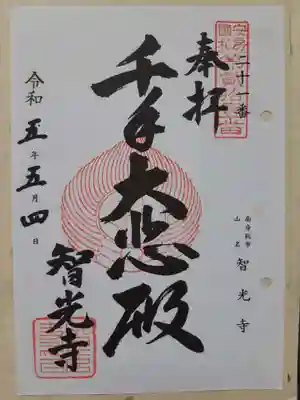 二十一番
奉拝
千手大悲殿
南房総市
山名
智光寺
智光寺
令和五年五月四日